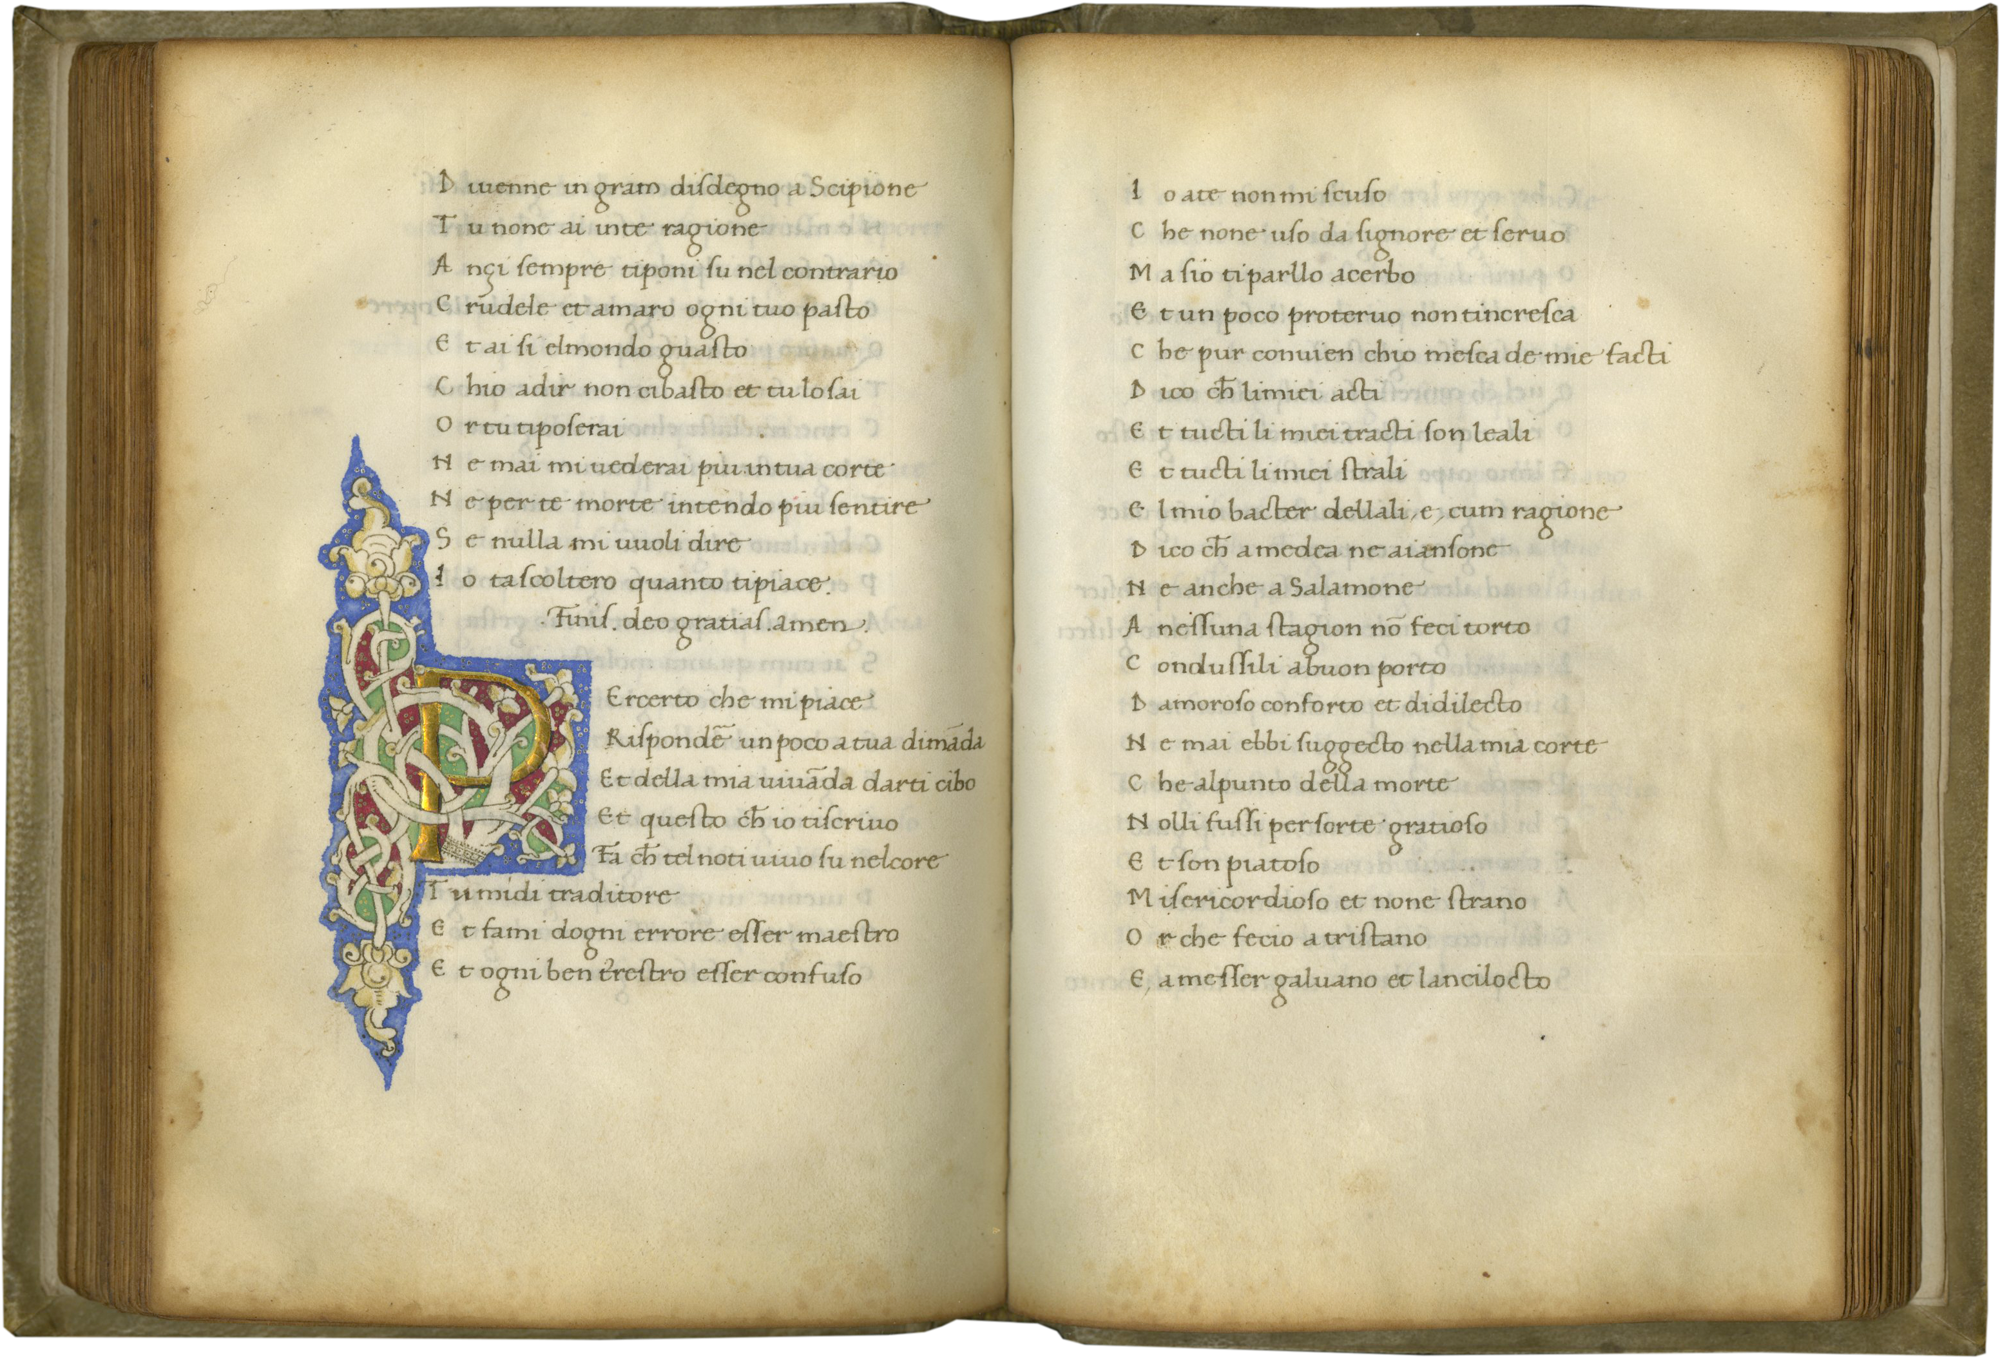 D iuenne in gram disdegno a Scipione
T u none ai inte ragione
A nçi sempre tiponi su nel contrario
C rudele et amaro ogni tuo pasto
E t ai si elmondo guasto
C hio adir non cibasto et tu lo sai
O r tu tiposerai
N e mai mi uederai piu in tua corte
N e per te morte intendo piu sentire
S e nulla mi uuoli dire
I o tascoltero quanto tipiace.
.Finis. deo gratias. amen.
P Ercerto che mi piace
Rispondē un poco a tua dimāda
Et della mia uiuāda darti cibo
Et questo ch̄ io tiscriuo
Fa ch̄ tel noti uiuo su nelcore
T u midi traditore
E t fami dogni errore esser maestro
E t ogni ben t̄restro esser confuso
I o ate non mi scuso
C he none uso da signore et seruo
M a sio ti parllo acerbo
E t un poco proteruo non tincresca
C he pur conuien chio mesca de mie facti
D ico ch̄ li miei acti
E t tucti li miei tracti son leali
E t tucti li miei strali
E l mio bacter dellali, e, cum ragione
D ico ch̄ a medea ne aiansone
N e anche a Salamone
A nessuna stagion nō feci torto
C ondussili abuon porto
D amoroso conforto et didilecto
N e mai ebbi suggecto nella mia corte
C he alpunto della morte
N olli fussi per sorte gratioso
E t son piatoso
M isericordioso et none strano
O r che fecio a tristano
E, a messer galuano et lancilocto